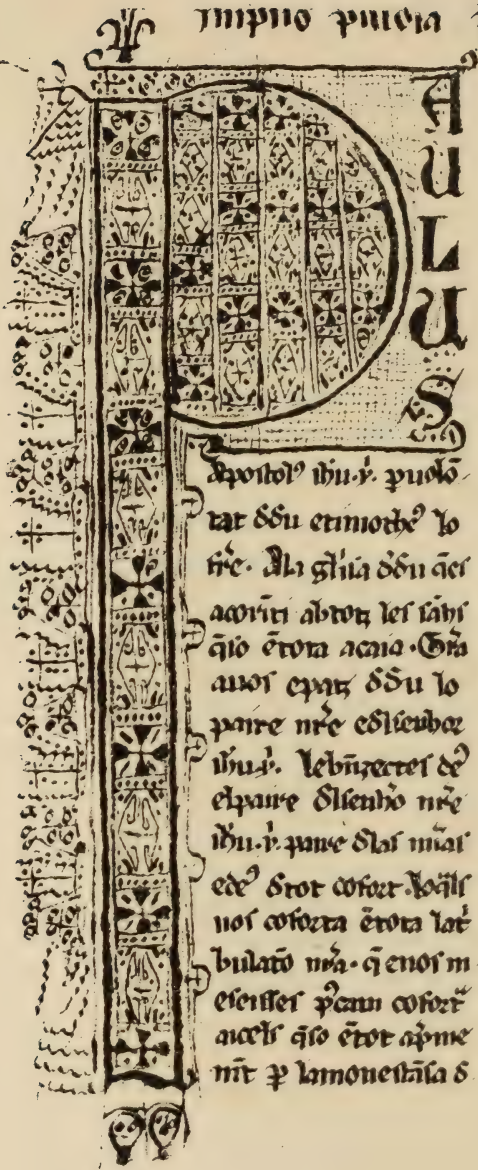 PAULUS
Apostol⁹ ihu.x̄. ꝑuolō
tat đđu etimothe⁹ lo
fr̄e. Ala gl'iia đđu q̄es
acorīti abtotz les sāhs
q̄so ētota acaia. Gr̄a
auos epatz đđu lo
paire nr̄e eđlsenhor
ihu.x̄. lebn̄zectes de⁹
elpaire đlsenho nr̄e
ihu.x̄. paire đlas
ede⁹ đtot cofort. loq̄ls
nos coforta ētota lat̄
bulatō nr̄a. q̄ enos m
eseisses cofort̄
aicels q̄so ētot ap̄me
ꝑ lamonestāsa đ